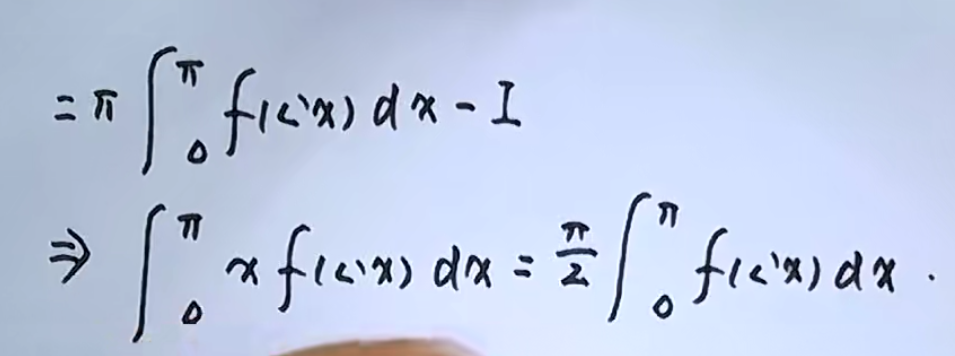 = π ∫₀^π f(sin x) dx - I
⇒ ∫₀^π x f(sin x) dx = π/2 ∫₀^π f(sin x) dx .